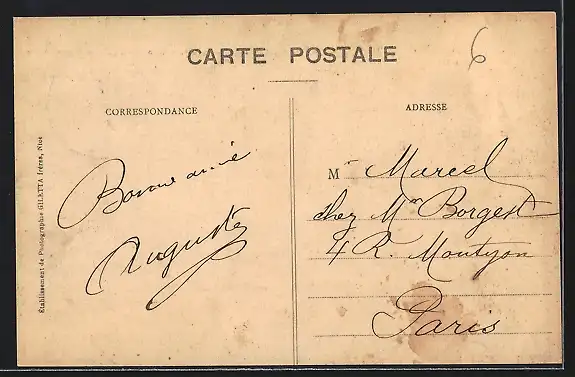 CARTE POSTALE
6
CORRESPONDANCE
Bonne année
Auguste
ADRESSE
Mr Marcel
chez Mme Borgest
4 R. Montyon
Paris
Établissement de Photographie GILETTA frères, Nice